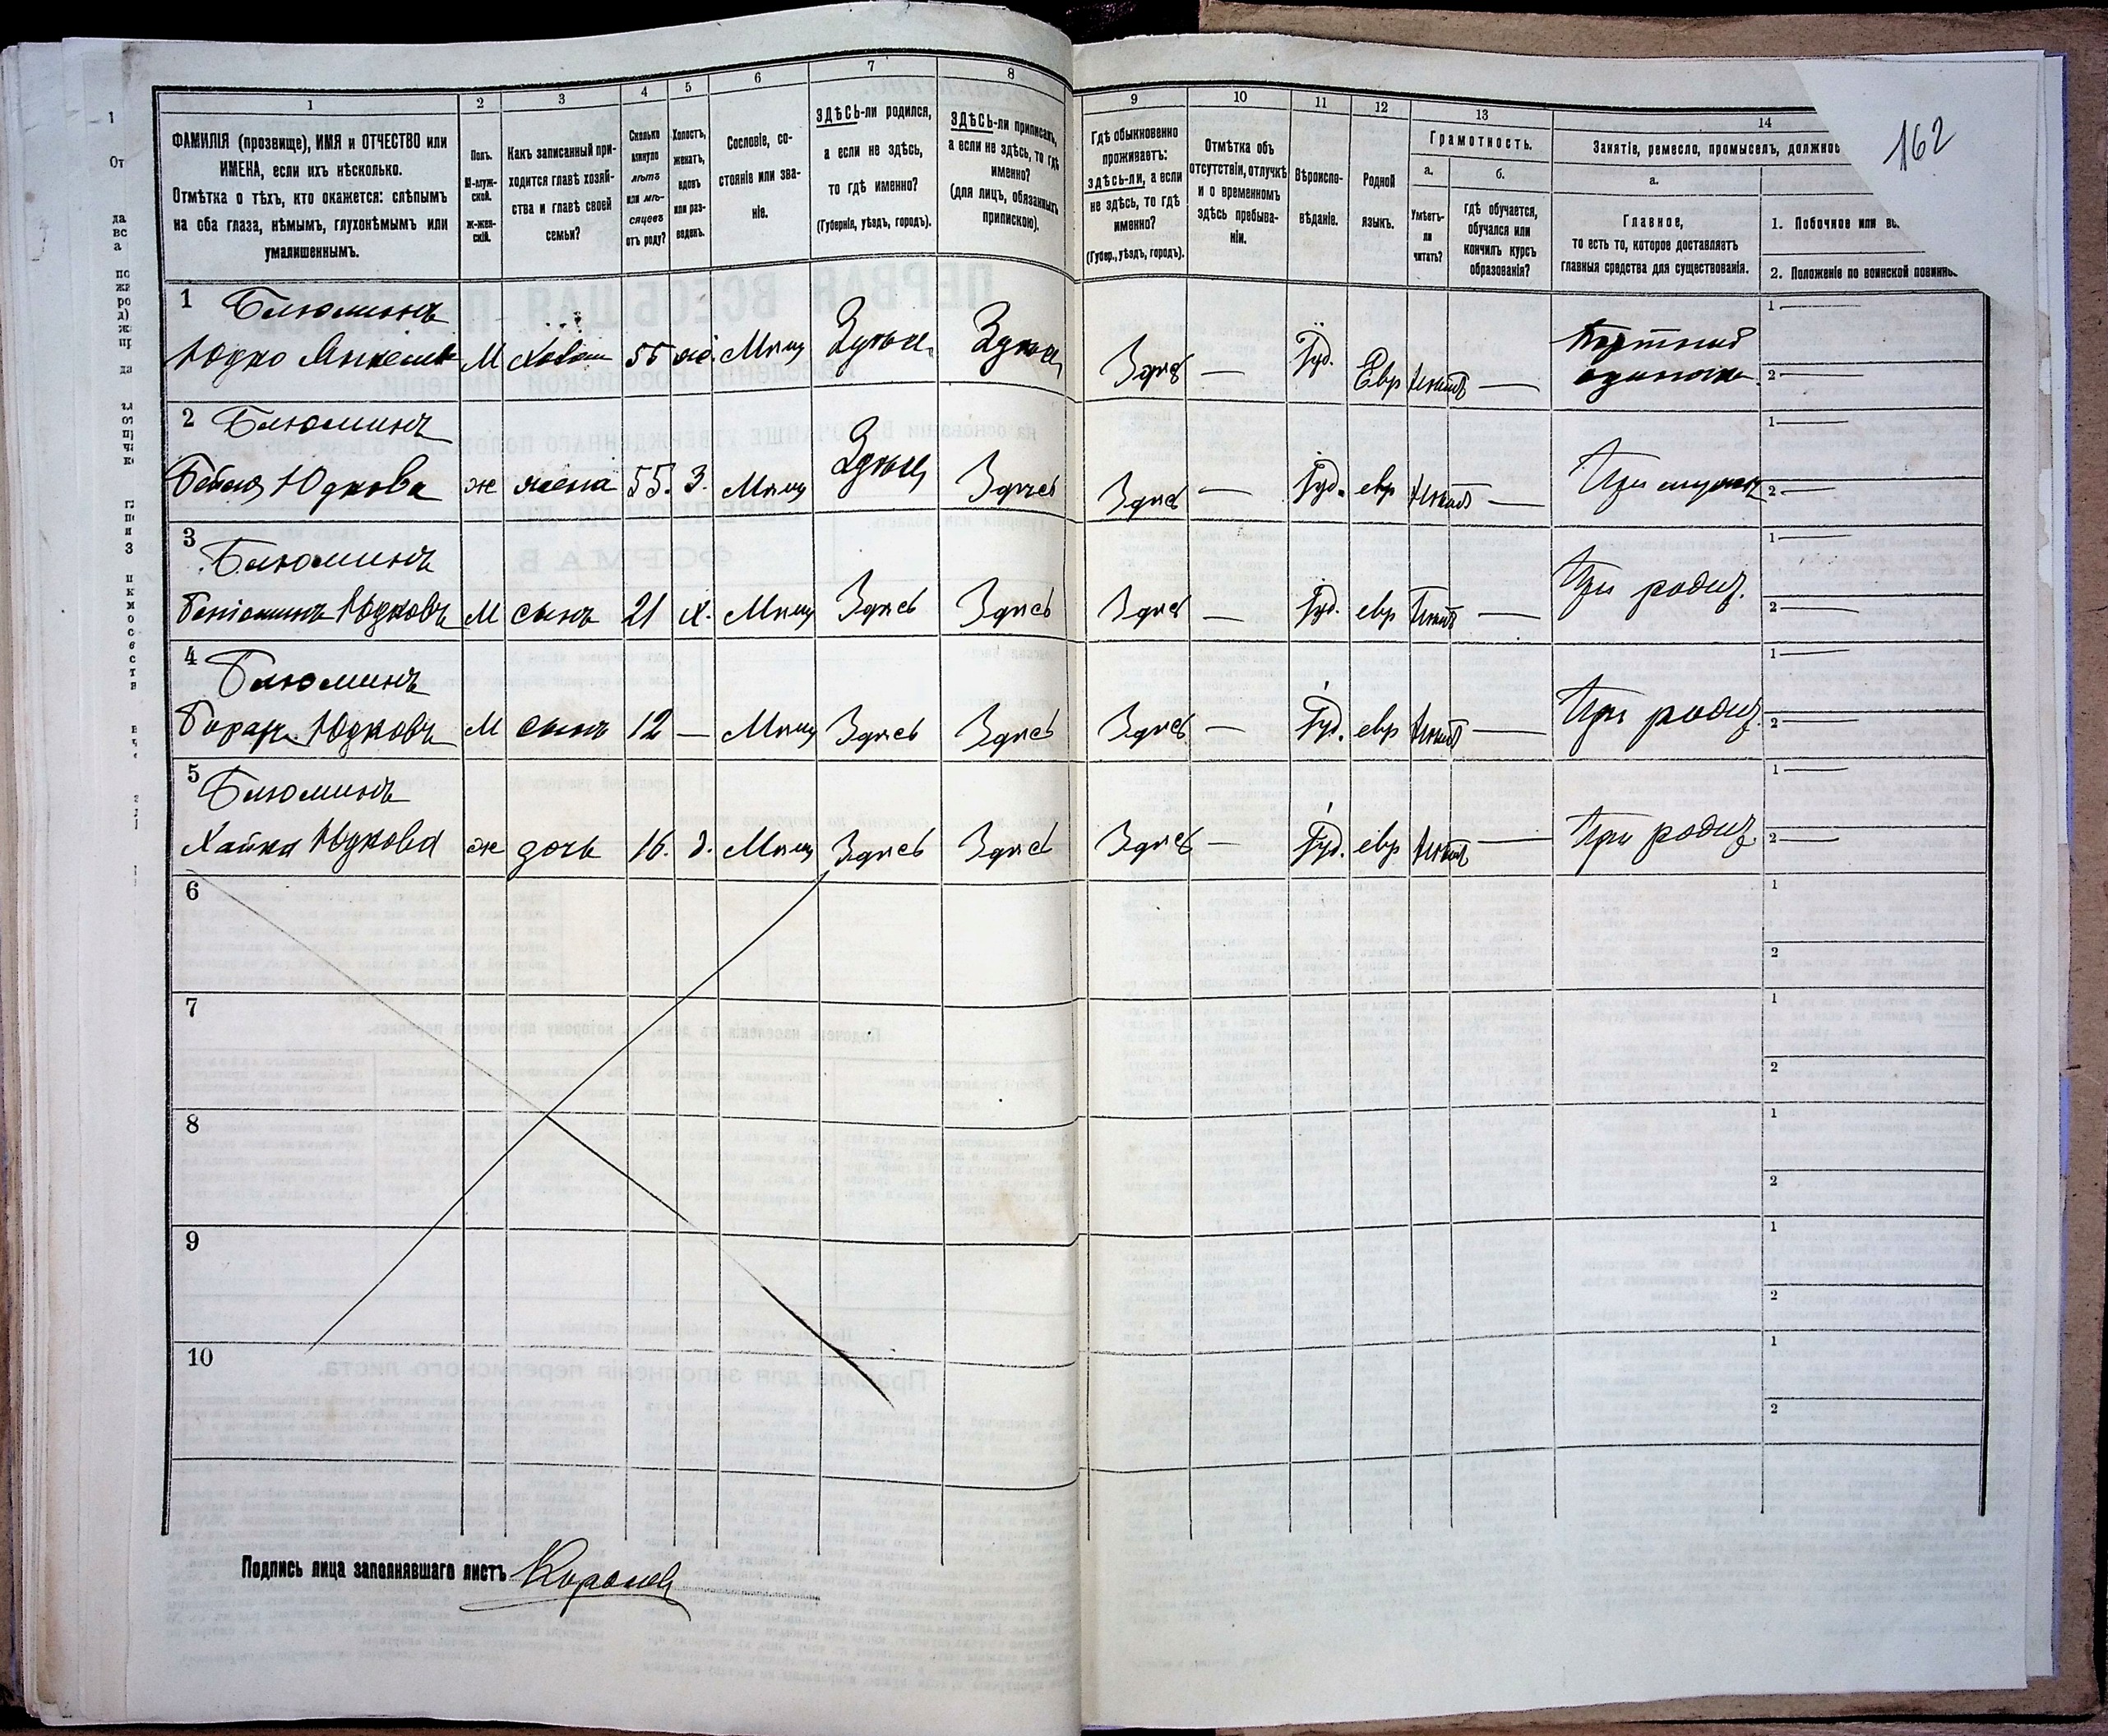 162
1
2
3
4
5
6
7
8
9
10
11
12
13
14
ФАМИЛІЯ (прозвище), ИМЯ и ОТЧЕСТВО или
ИМЕНА, если ихъ нѣсколько.
Отмѣтка о тѣхъ, кто окажется: слѣпымъ
на оба глаза, нѣмымъ, глухонѣмымъ или
умалишеннымъ.
Полъ.
М-муж-
ской.
ж-жен-
скій.
Какъ записанный при-
ходится главѣ хозяй-
ства и главѣ своей
семьи?
Сколько
минуло
лѣтъ
или мѣ-
сяцевъ
отъ роду?
Холостъ,
женатъ,
вдовъ
или раз-
веденъ.
Сословіе, со-
стояніе или зва-
ніе.
ЗДѢСЬ-ли родился,
а если не здѣсь,
то гдѣ именно?
(Губернія, уѣздъ, городъ).
ЗДѢСЬ-ли приписанъ,
а если не здѣсь, то гдѣ
именно?
(для лицъ, обязанныхъ
припискою).
Гдѣ обыкновенно
проживаетъ:
здѣсь-ли, а если
не здѣсь, то гдѣ
именно?
(Губер., уѣздъ, городъ).
Отмѣтка объ
отсутствіи, отлучкѣ
и о временномъ
здѣсь пребыва-
ніи.
Вѣроиспо-
вѣданіе.
Родной
языкъ.
Грамотность.
а.
Умѣетъ-
ли
читать?
б.
гдѣ обучается,
обучался или
кончилъ курсъ
образованія?
Занятіе, ремесло, промыселъ, должнос
а.
Главное,
то есть то, которое доставляетъ
главныя средства для существованія.
1. Побочное или
2. Положеніе по воинской повинно
1
Блюминъ
Юдко М 55 Мѣщ Здѣсь Здѣсь Здѣсь — Іуд. Евр —
Портной
одиночка
1 —
2 —
2
Блюминъ
Юдкова ж жена 55. З. Мѣщ Здѣсь Здѣсь Здѣсь — Іуд. евр — При мужѣ
1 —
2 —
3
Блюминъ
Беніаминъ Юдковъ М сынъ 21 х. Мѣщ Здѣсь Здѣсь Здѣсь — Іуд. евр — При родит.
1 —
2 —
4
Блюминъ
Юдковъ М сынъ 12 — Мѣщ Здѣсь Здѣсь Здѣсь — Іуд. евр — При родит
1 —
2 —
5
Блюминъ
Хайка Юдкова ж дочь 16. д. Мѣщ Здѣсь Здѣсь Здѣсь — Іуд. евр — При родит
1 —
2 —
6
1
2
7
1
2
8
1
2
9
1
2
10
1
2
Подпись лица заполнявшаго листъ